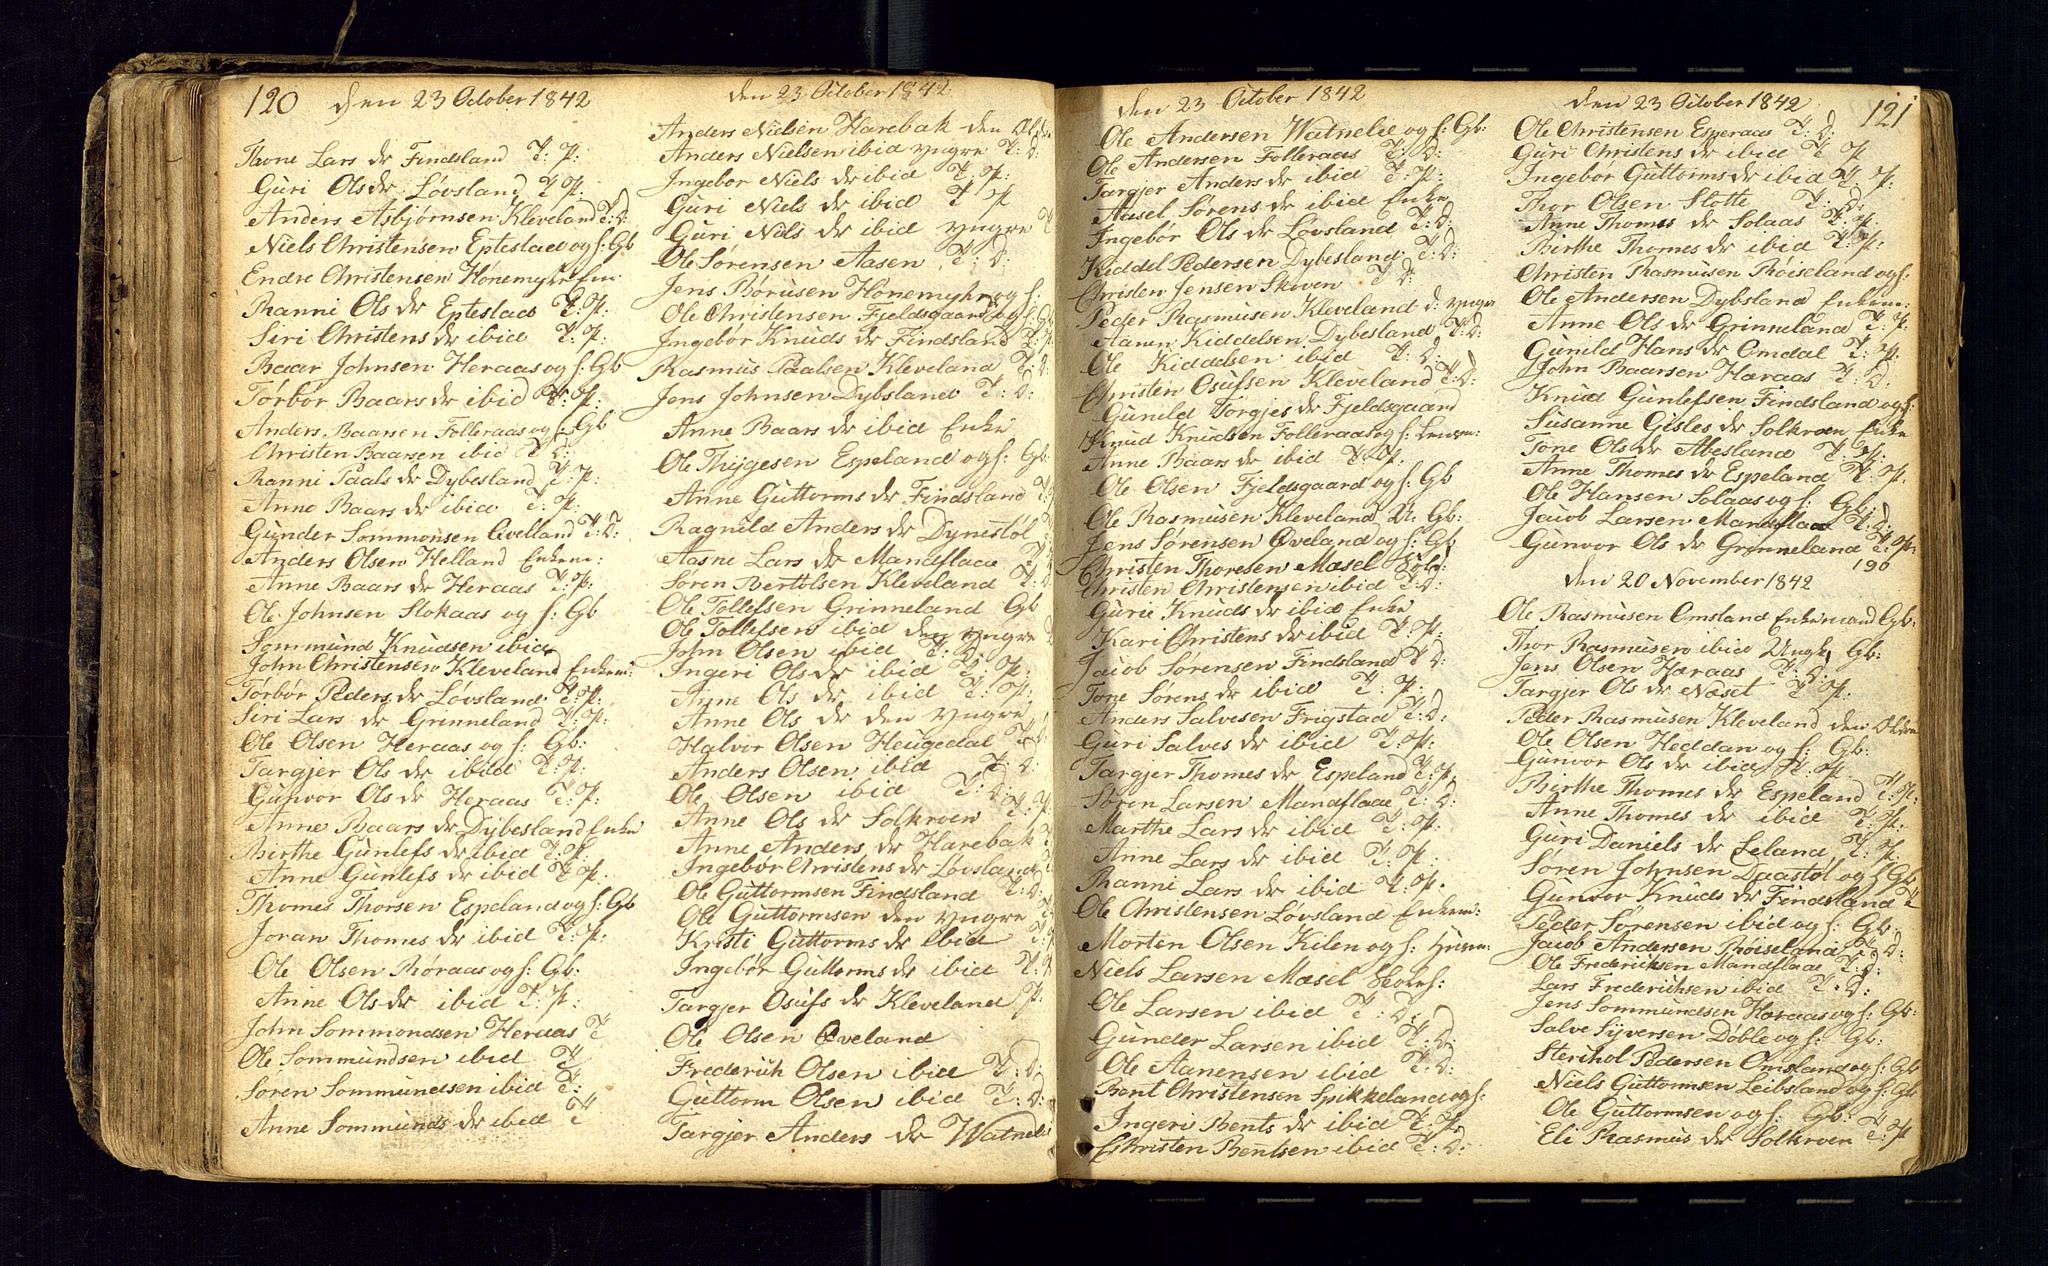 120 den 23 October 1842
Thone Lars dr Findsland T: P:
Guri Ols dr Løvsland T P:
Anders Asbjørnsen Kleveland T: D:
Niels Christensen Eptestad og h: Gb
Endre Christensen Hønemyhr Em:
Ranni Ols dr Eptestad T: P:
Siri Christens dr ibid T: P:
Baar Johnsen Heraas og h: Gb
Tørbør Baars dr ibid T: P:
Anders Baarsen Folleraas og h: Gb
Christen Baarsen ibid T D:
Ranni Paals dr Dybesland T: P:
Anne Baars dr ibid T: P:
Gunder Sommonsen Qvelland T: D:
Anders Olsen Helland Enkem:
Anne Baars dr Heraas T: P:
Ole Johnsen Stokaas og h: Gb
Sommund Knudsen ibid
John Christensen Kleveland Enkem:
Tørbør Peders dr Løvsland T: P:
Siri Lars dr Grinneland T: P:
Ole Olsen Heraas og h: Gb:
Targjer Ols dr ibid T: P:
Gunvor Ols dr Heraas T: P:
Anne Baars dr Dybesland Enke
Birthe Gunlefs dr ibid T: P:
Anne Gunlefs dr ibid T: P:
Thomes Thorsen Espeland og h: Gb
Joran Thomes dr ibid T: P:
Ole Olsen Røraas og h: Gb:
Anne Ols dr ibid T: P:
John Sommondsen Heraas T
Ole Sommundsen ibid T
Søren Sommundsen ibid T:
Anne Sommunds dr ibid T
den 23 October 1842
Anders Nielsen Harebak den Ældre
Anders Nielsen ibid yngre T: D:
Ingebor Niels dr ibid T: P:
Guri Niels dr ibid T P
Guri Niels dr ibid yngre T
Ole Sørensen Aasen T: D:
Jens Børusen Hønemyhr og h:
Ole Christensen Fjeldsgaard og h: Gb
Ingebør Knuds dr Findsland T: P
Rasmus Paalsen Kleveland T: D:
Jens Johnsen Dybsland T: D:
Anne Baars dr ibid Enke
Ole Thygesen Espeland og h: Gb:
Anne Guttorms dr Findsland T:
Ragnild Anders dr Dynestøl T
Aasne Lars dr Mandflaae T
Søren Bertolsen Kleveland T
Ole Tollefsen Grinneland Gb
Ole Tollefsen ibid den yngre
John Olsen ibid T: D:
Ingeri Ols dr ibid T: P:
Anne Ols dr ibid T: P:
Anne Ols dr den yngre
Halvor Olsen Heugedal T D:
Anders Olsen ibid T: D:
Ole Olsen ibid T: D:
Anne Ols dr Solkroen T: P:
Anne Anders dr Harebak T
Ingebør Christens dr Løvsland T:
Ole Guttormsen Findsland T: D:
Ole Guttormsen den yngre T
Kristi Guttorms dr ibid T: P
Ingebør Guttorms dr ibid T:
Targjer Osufs dr Kleveland P:
Ole Olsen Øveland
Frederich Olsen ibid T: D:
Guttorm Olsen ibid T: D:
Targjer Anders dr Watneli
den 23 October 1842
Ole Andersen Watnelie og h: Gb:
Ole Andersen Folleraas T: D:
Targjer Anders dr ibid T: P:
Aasel Sørens dr ibid Enke
Ingebør Ols dr Løvsland T: D:
Kiddel Pedersen Dybesland T: D:
Christen Jensen Skoven T D:
Peder Rasmusen Kleveland d: yngre
Aanen Kiddelsen Dybesland T: D:
Ole Kiddelsen ibid T: D:
Christen Osufsen Kleveland T: D:
Gunild Torgjes dr Fjeldsgaard
Knud Knudsen Folleraas og h:
Anne Baars dr ibid T: P:
Ole Olsen Fjeldsgaard og h: Gb
Ole Rasmusen Kleveland U: Gb:
Jens Sørensen Øveland og h: Gb
Christen Thoresen Mæsel
Christen Christensen ibid T: D:
Gurie Knuds dr ibid Enke
Kari Christens dr ibid T: P:
Jacob Sørensen Findsland T D:
Tone Sørens dr ibid T: P:
Anders Salvesen Frigstad T: D:
Guri Salves dr ibid T: P:
Targjer Thomes dr Espeland T: P:
Søren Larsen Mandflaae T: D:
Marthe Lars dr ibid T: P:
Anne Lars dr ibid T: P:
Ranni Lars dr ibid T: P.
Ole Christensen Løvsland Enkem:
Morten Olsen Kilen og h: Huusm:
Niels Larsen Mæsel Skoleh:
Ole Larsen ibid T: D:
Gunder Larsen ibid T: D:
Ole Aanensen ibid T: D:
Bent Christensen Spikkeland og h:
Ingeri Bents dr ibid T: P:
Christen Bentsen ibid T: D:
den 23 October 1842 121
Ole Christensen Esperaas T: D:
Guri Christens dr ibid T P
Ingebor Guttorms dr ibid T P:
Thor Olsen Slotte T: D:
Anne Thomes dr Solaas T: P:
Birthe Thomes dr ibid T: P:
Christen Rasmusen Røiseland og h:
Ole Andersen Dybsland Enkem:
Anne Ols dr Grinneland T: P:
Gunild Hans dr Omdal T: P:
John Baarsen Haraas T: D:
Knud Gunlefsen Findsland og h:
Susanne Gisles dr Solkroen Enke
Tone Ols dr Abesland T: P:
Anne Thomes dr Espeland T: P:
Ole Hansen Solaas og h: Gb:
Jacob Larsen Mandflaae T: D:
Gunvor Ols dr Grinneland T: P:
190
den 20 November 1842
Ole Rasmusen Omsland Enkemand Gb:
Thor Rasmusen ibid Ungk: Gb:
Jens Olsen Haraas T: D:
Targjer Ols dr Næset T P:
Peder Rasmusen Kleveland den Ældre
Ole Olsen Heddan og h: Gb:
Gunvor Ols dr ibid T: P:
Birthe Thomes dr Espeland T: P:
Anne Thomes dr ibid T: P:
Guri Daniels dr Leland T: P:
Søren Johnsen Daastøl og h: Gb
Gunvor Knuds dr Findsland T
Peder Sørensen ibid og h: Gb:
Jacob Andersen Røiseland T: D:
Ole Frederichsen Mandflaae T: D:
Lars Frederichsen ibid T: D:
Jens Sommundsen Haraas og h: Gb:
Salve Syversen Døble og h: Gb:
Pedersen Omsland og h: Gb
Niels Guttormsen Leibsland og h: Gb
Ole Guttormsen og h: Gb:
Eli Rasmus dr Solkroen T: P